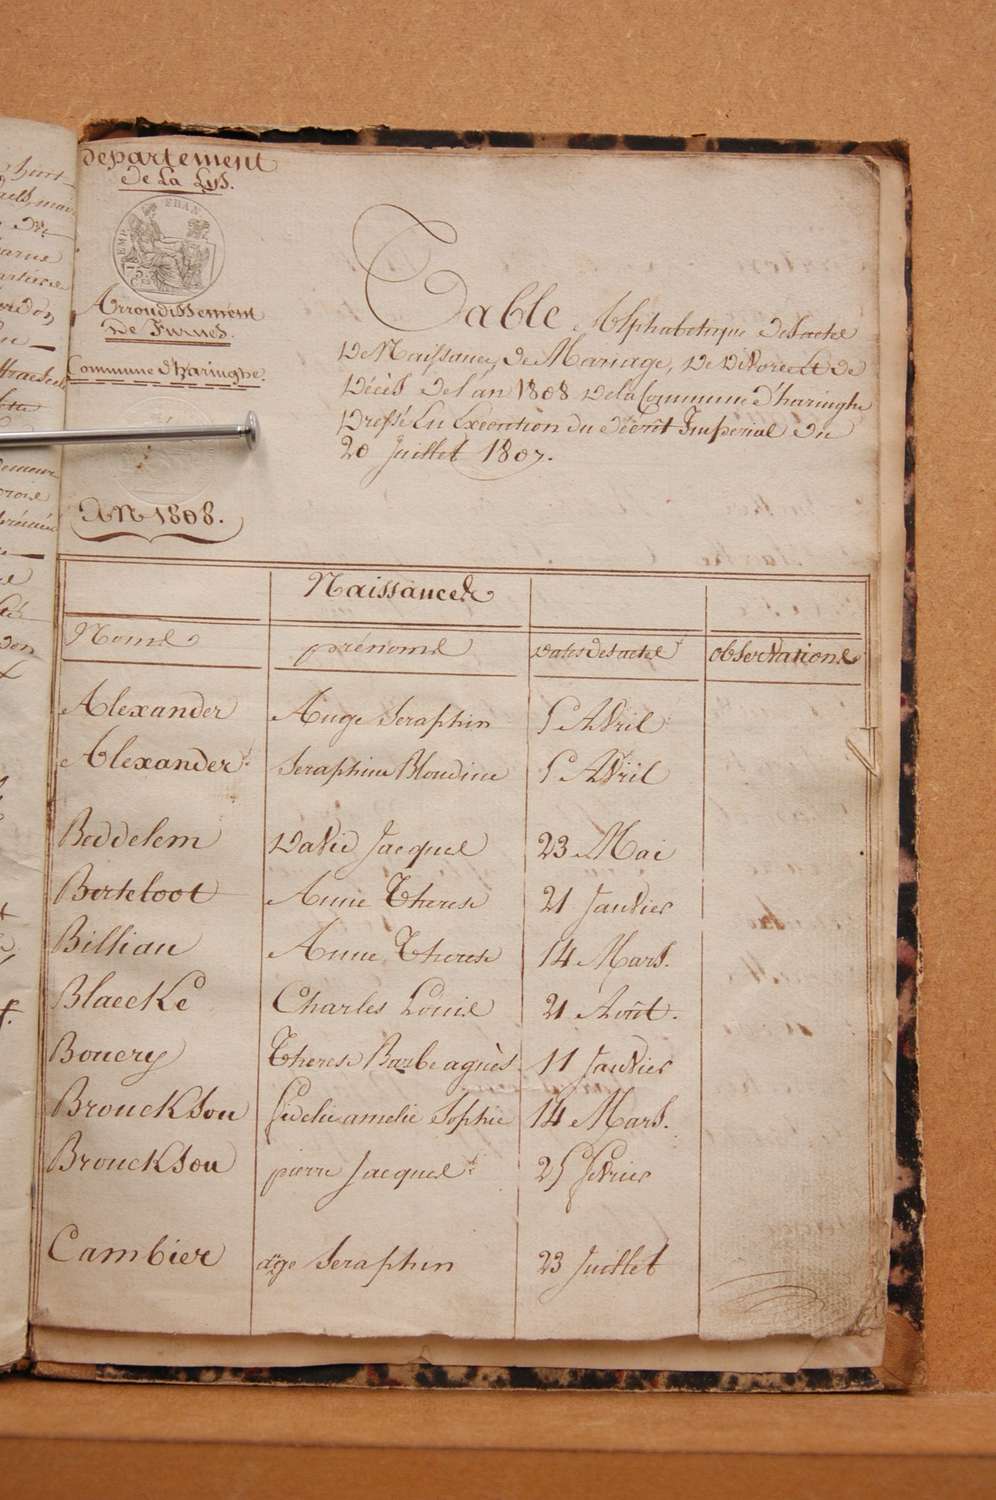 departement
de La Lys.
EMP. FRAN
Arrondissement
de Furnes.
Commune d'haringhe.
An 1808.
Table Alphabetique des actes
de Naissances, de Mariage, de Divorce et de
Décès de l'an 1808 de la Commune d'haringhe
Dressé En Execution du décrêt Impérial du
20 Juillet 1807.
Naissances
Noms prénoms dates des actes observations
Alexander Ange Seraphin 5 Avril
Alexander Seraphine Blondine 5 Avril
Beddelem David Jacques 23 Mai
Berteloot Anne Therese 21 Janvier
Billiau Anne Therese 14 Mars.
Blaecke Charles Louis 21 Août.
Bouery Therese Barbe agnès 11 Janvier
Brouckson fidelie amelie Sophie 14 Mars.
Brouckson pierre Jacques 25 fevrier
Cambier ange Seraphin 23 Juillet